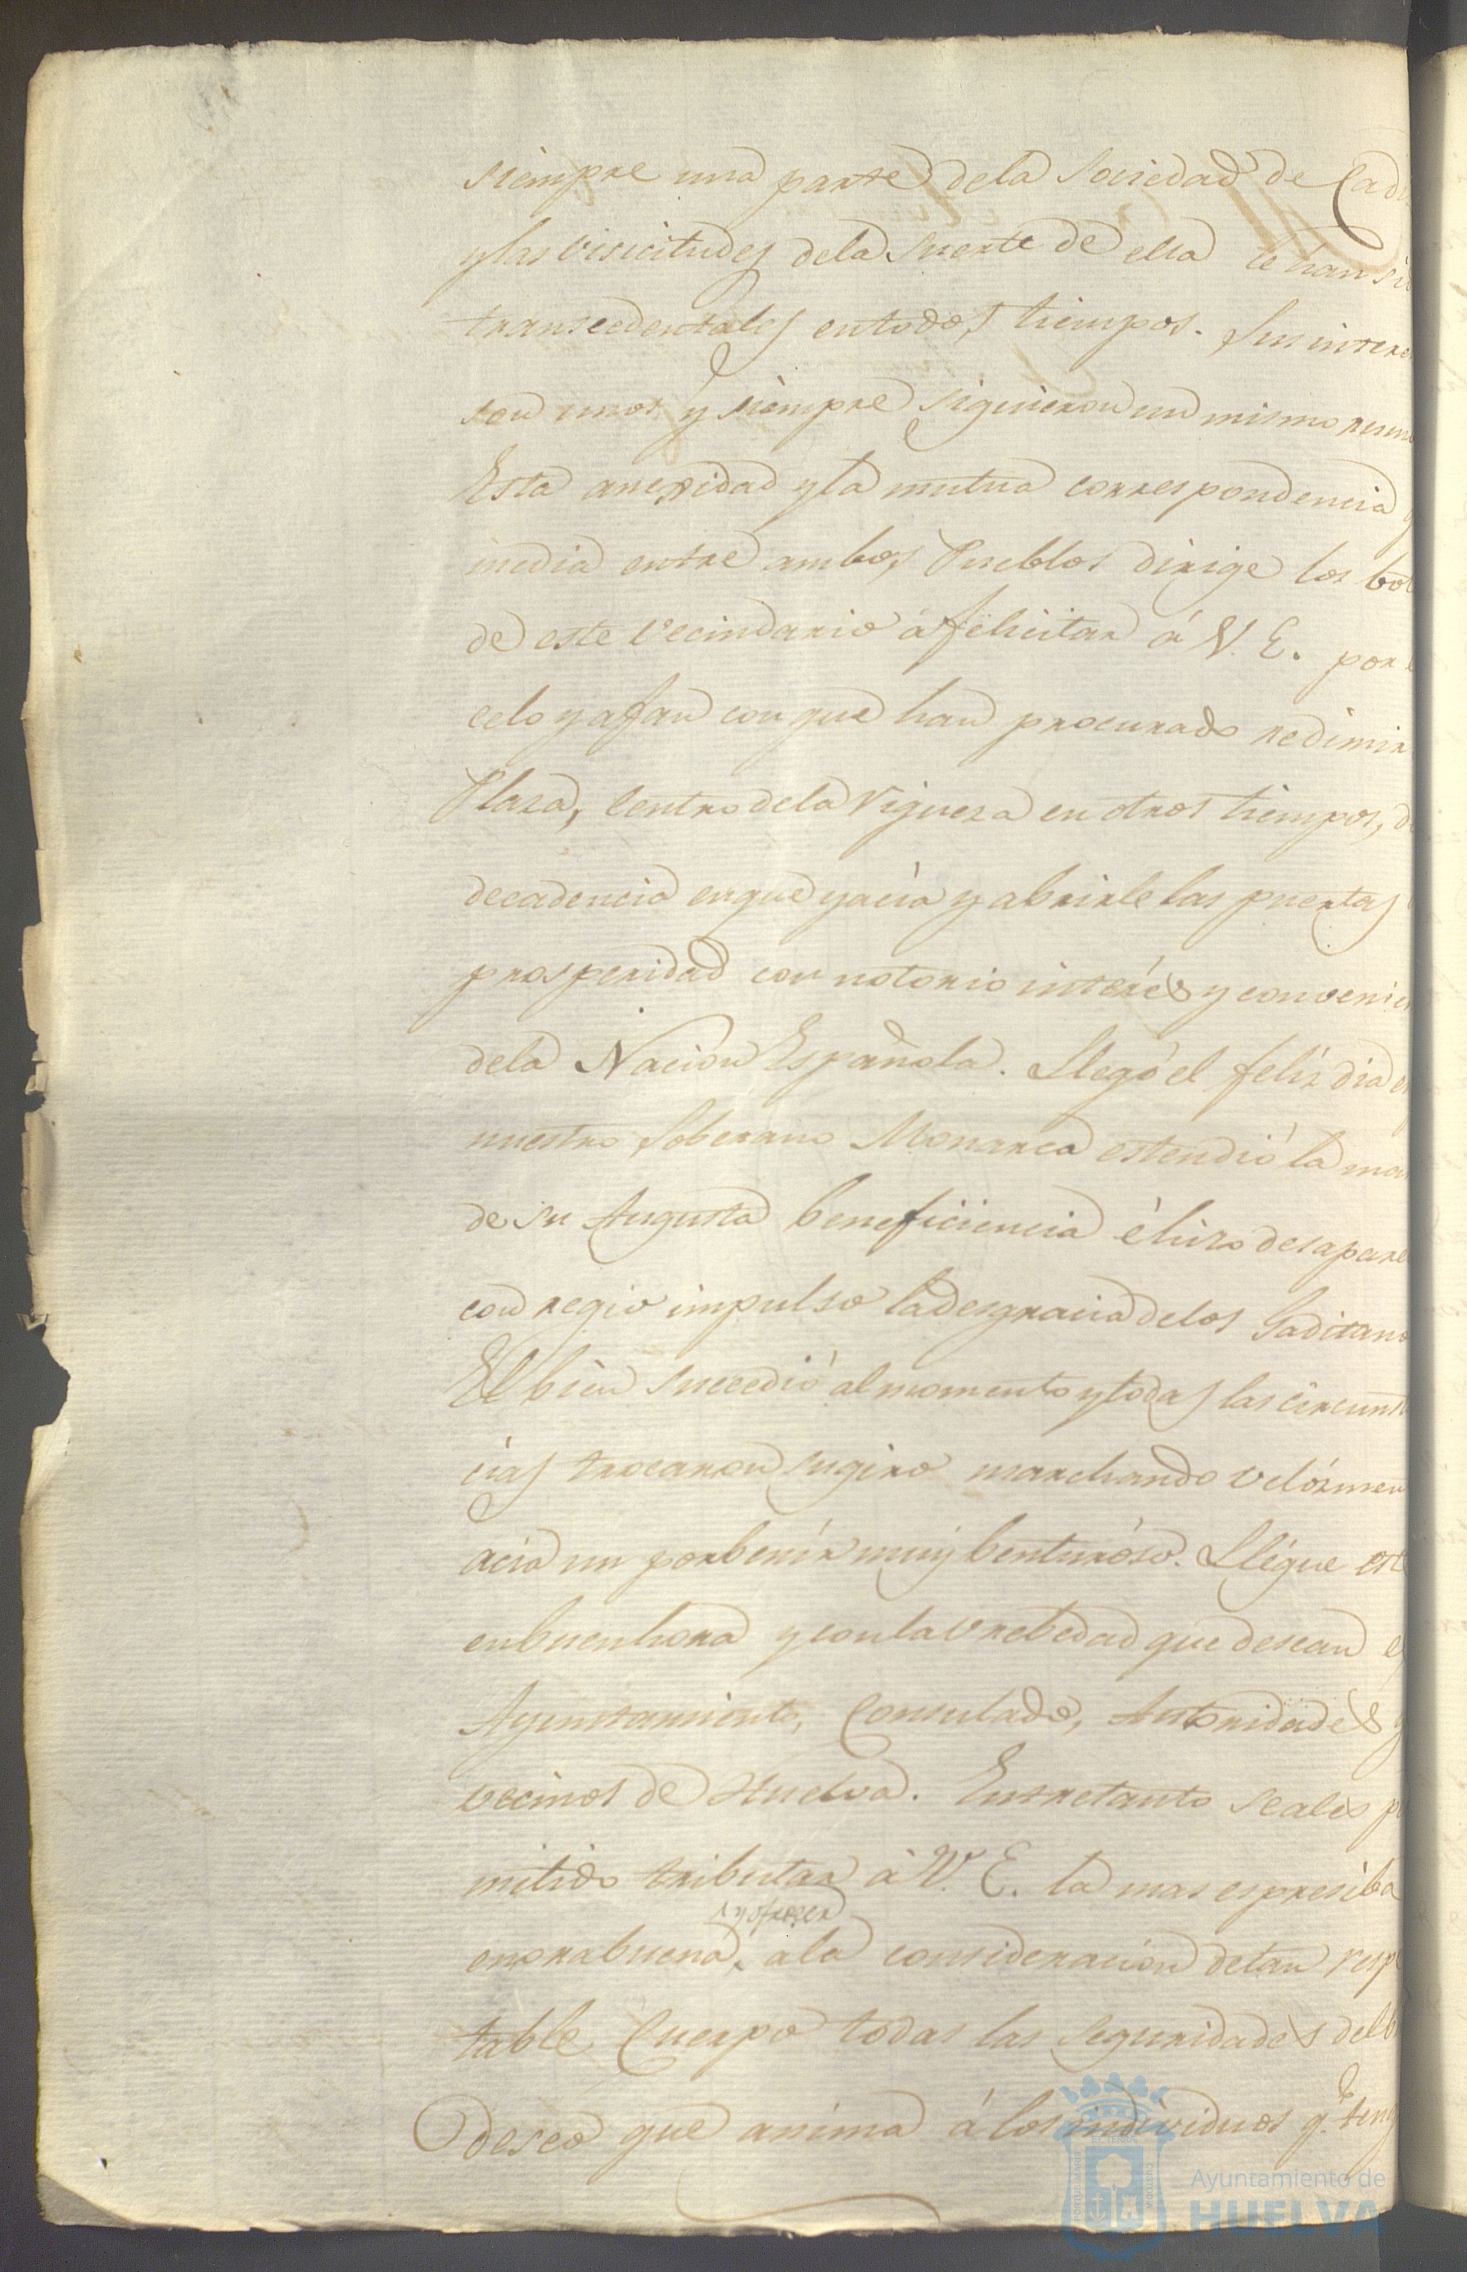 siempre una parte dela Sociedad de Cad
y las visicitudes dela Suerte de ella le han si
transcedentales entodos tiempos. Sus intere
son unos, y siempre siguieron un mismo rum
Esta anexidad y la mutua correspondencia q
media entre ambos Pueblos dirige los bo
de este Vecindario á felicitar á V. E. por
celo y afan con que han procurado redimir
Plaza, Centro dela riqueza en otros tiempos, d
decadencia en que yacía y abrirle las puertas
prosperidad con notorio interés y convenie
dela Nacion Española. Llegó el felíz dia e
nuestro Soberano Monarca estendió la ma
de su Augusta beneficiencia é hizo desapare
con regio impulso la desgracia delos Gaditano
El bien sucedió al momento y todas las circunst
cias trocaron su giro marchando velózmen
acia un porbenír muy benturóso. Llégue est
enbuenhora y con la brebedad que desean e
Ayuntamiento, Consulado, Autoridades y
vecinos de Huelva. Entretanto seales p
mitido tributar á V. E. la mas espresiba
y ofrecer
enorabuena, ala consideracion de tan resp
table Cuerpo todas las seguridades del b
deseo que anima á los individuos q.e ten
Ayuntamiento de
HUELVA